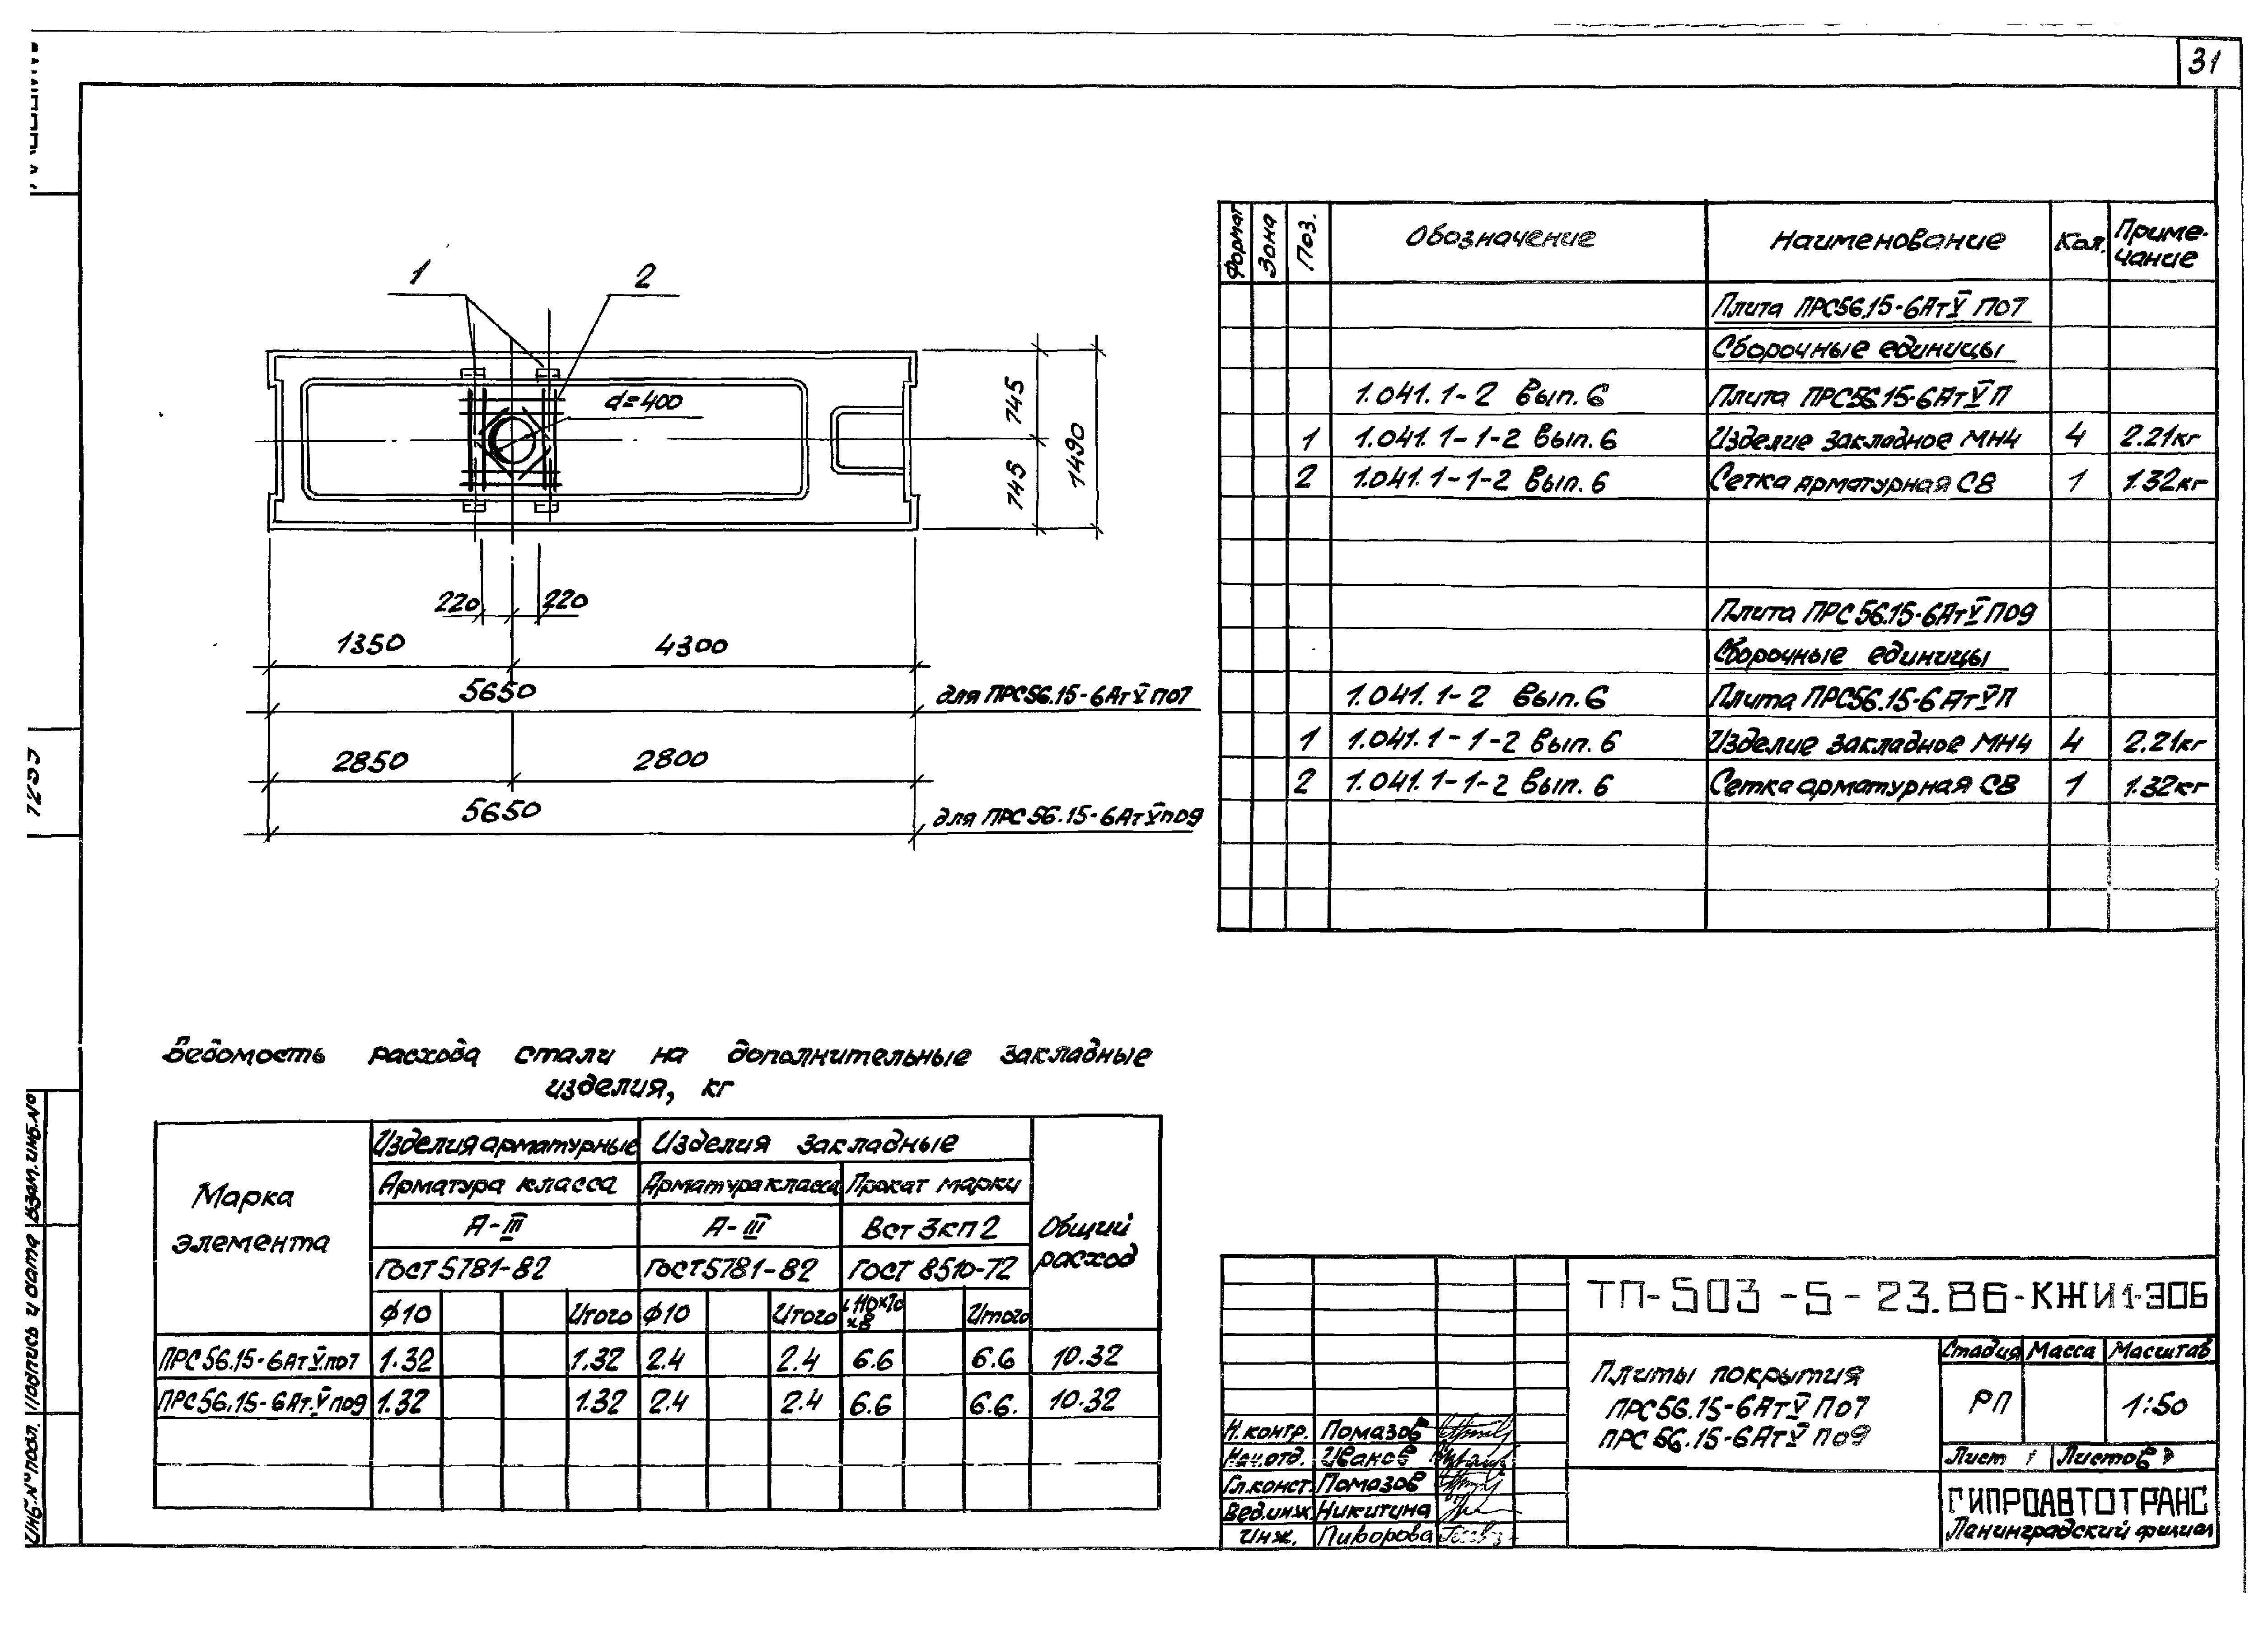 31
1
2
d=400
745
745
1490
220
220
1350
4300
5650
для ПРС56.15-6АтV П07
2850
2800
5650
для ПРС56.15-6АтV П09
Формат
Зона
Поз.
Обозначение
Наименование
Кол.
Приме-
чание
Плита ПРС56.15-6АтV П07
Сборочные единицы
1.041.1-2 Вып.6 Плита ПРС56.15-6АтV П
1 1.041.1-1-2 Вып.6 Изделие закладное МН4 4 2.21кг
2 1.041.1-1-2 Вып.6 Сетка арматурная С8 1 1.32кг
Плита ПРС56.15-6АтV П09
Сборочные единицы
1.041.1-2 Вып.6 Плита ПРС56.15-6АтV П
1 1.041.1-1-2 Вып.6 Изделие закладное МН4 4 2.21кг
2 1.041.1-1-2 Вып.6 Сетка арматурная С8 1 1.32кг
Ведомость расхода стали на дополнительные закладные
изделия, кг
Марка
элемента
Изделия арматурные
Изделия закладные
Общий
расход
Арматура класса
Арматура класса
Прокат марки
А-III
А-III
Вст3кп2
ГОСТ 5781-82
ГОСТ 5781-82
ГОСТ 8510-72
ф10 Итого ф10 Итого
Итого
ПРС56.15-6АтV.П07 1.32 1.32 2.4 2.4 6.6 6.6 10.32
ПРС56.15-6Ат.V П09 1.32 1.32 2.4 2.4 6.6 6.6. 10.32
ТП-503-5-23.86-КЖИ1-306
Плиты покрытия
ПРС56.15-6АтV П07
ПРС56.15-6АтV П09
Стадия Масса Масштаб
РП 1:50
Лист Листов
Н.контр. Помазов
Нач.отд. Иванов
Гл.конст. Помазов
Вед.инж. Никитина
Инж. Пиворова
ГИПРОАВТОТРАНС
Ленинградский филиал
Взам.инв.№
Подпись и дата
Инв.№ подл.